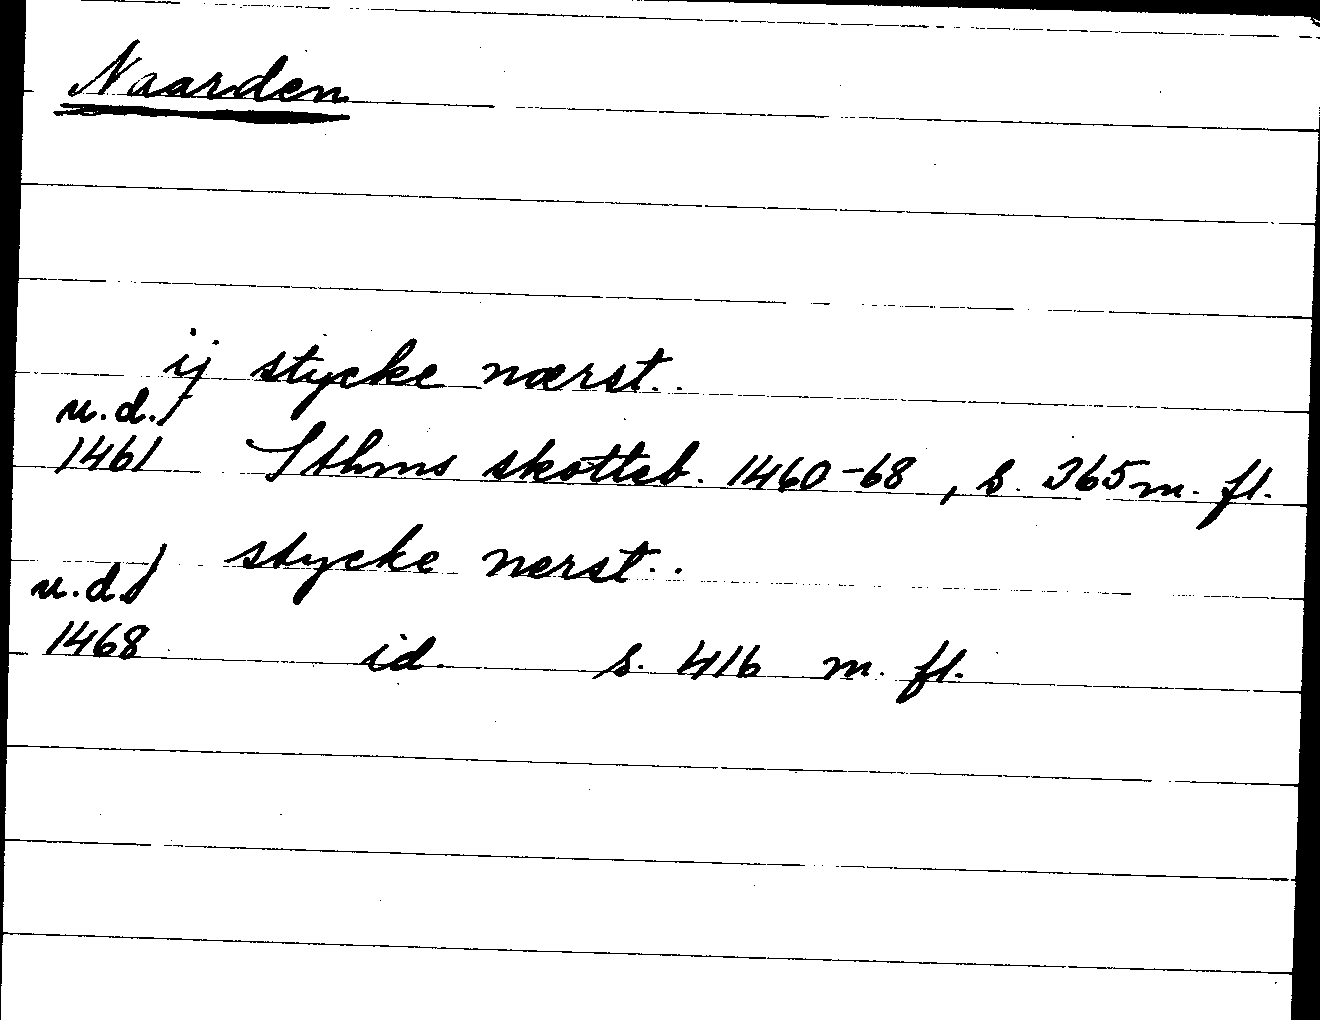 Naarden
ij stycke nærst..
u.d.
1461 Sthms skotteb. 1460-68, s. 365 m. fl.
1 stycke nerst..
u.d.
1468 id. s. 416 m. fl.